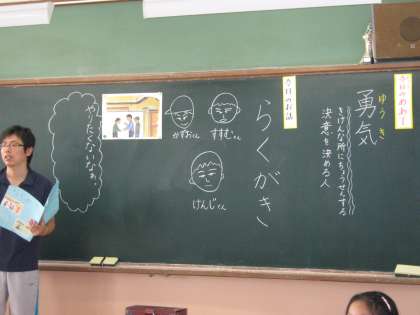 今日のめあて
ゆうき
勇気
きけんな所にちょうせんする
決意を決める人
今日のお話
らくがき
すすむくん
かずおくん
けんじくん
やりたくないなあ。